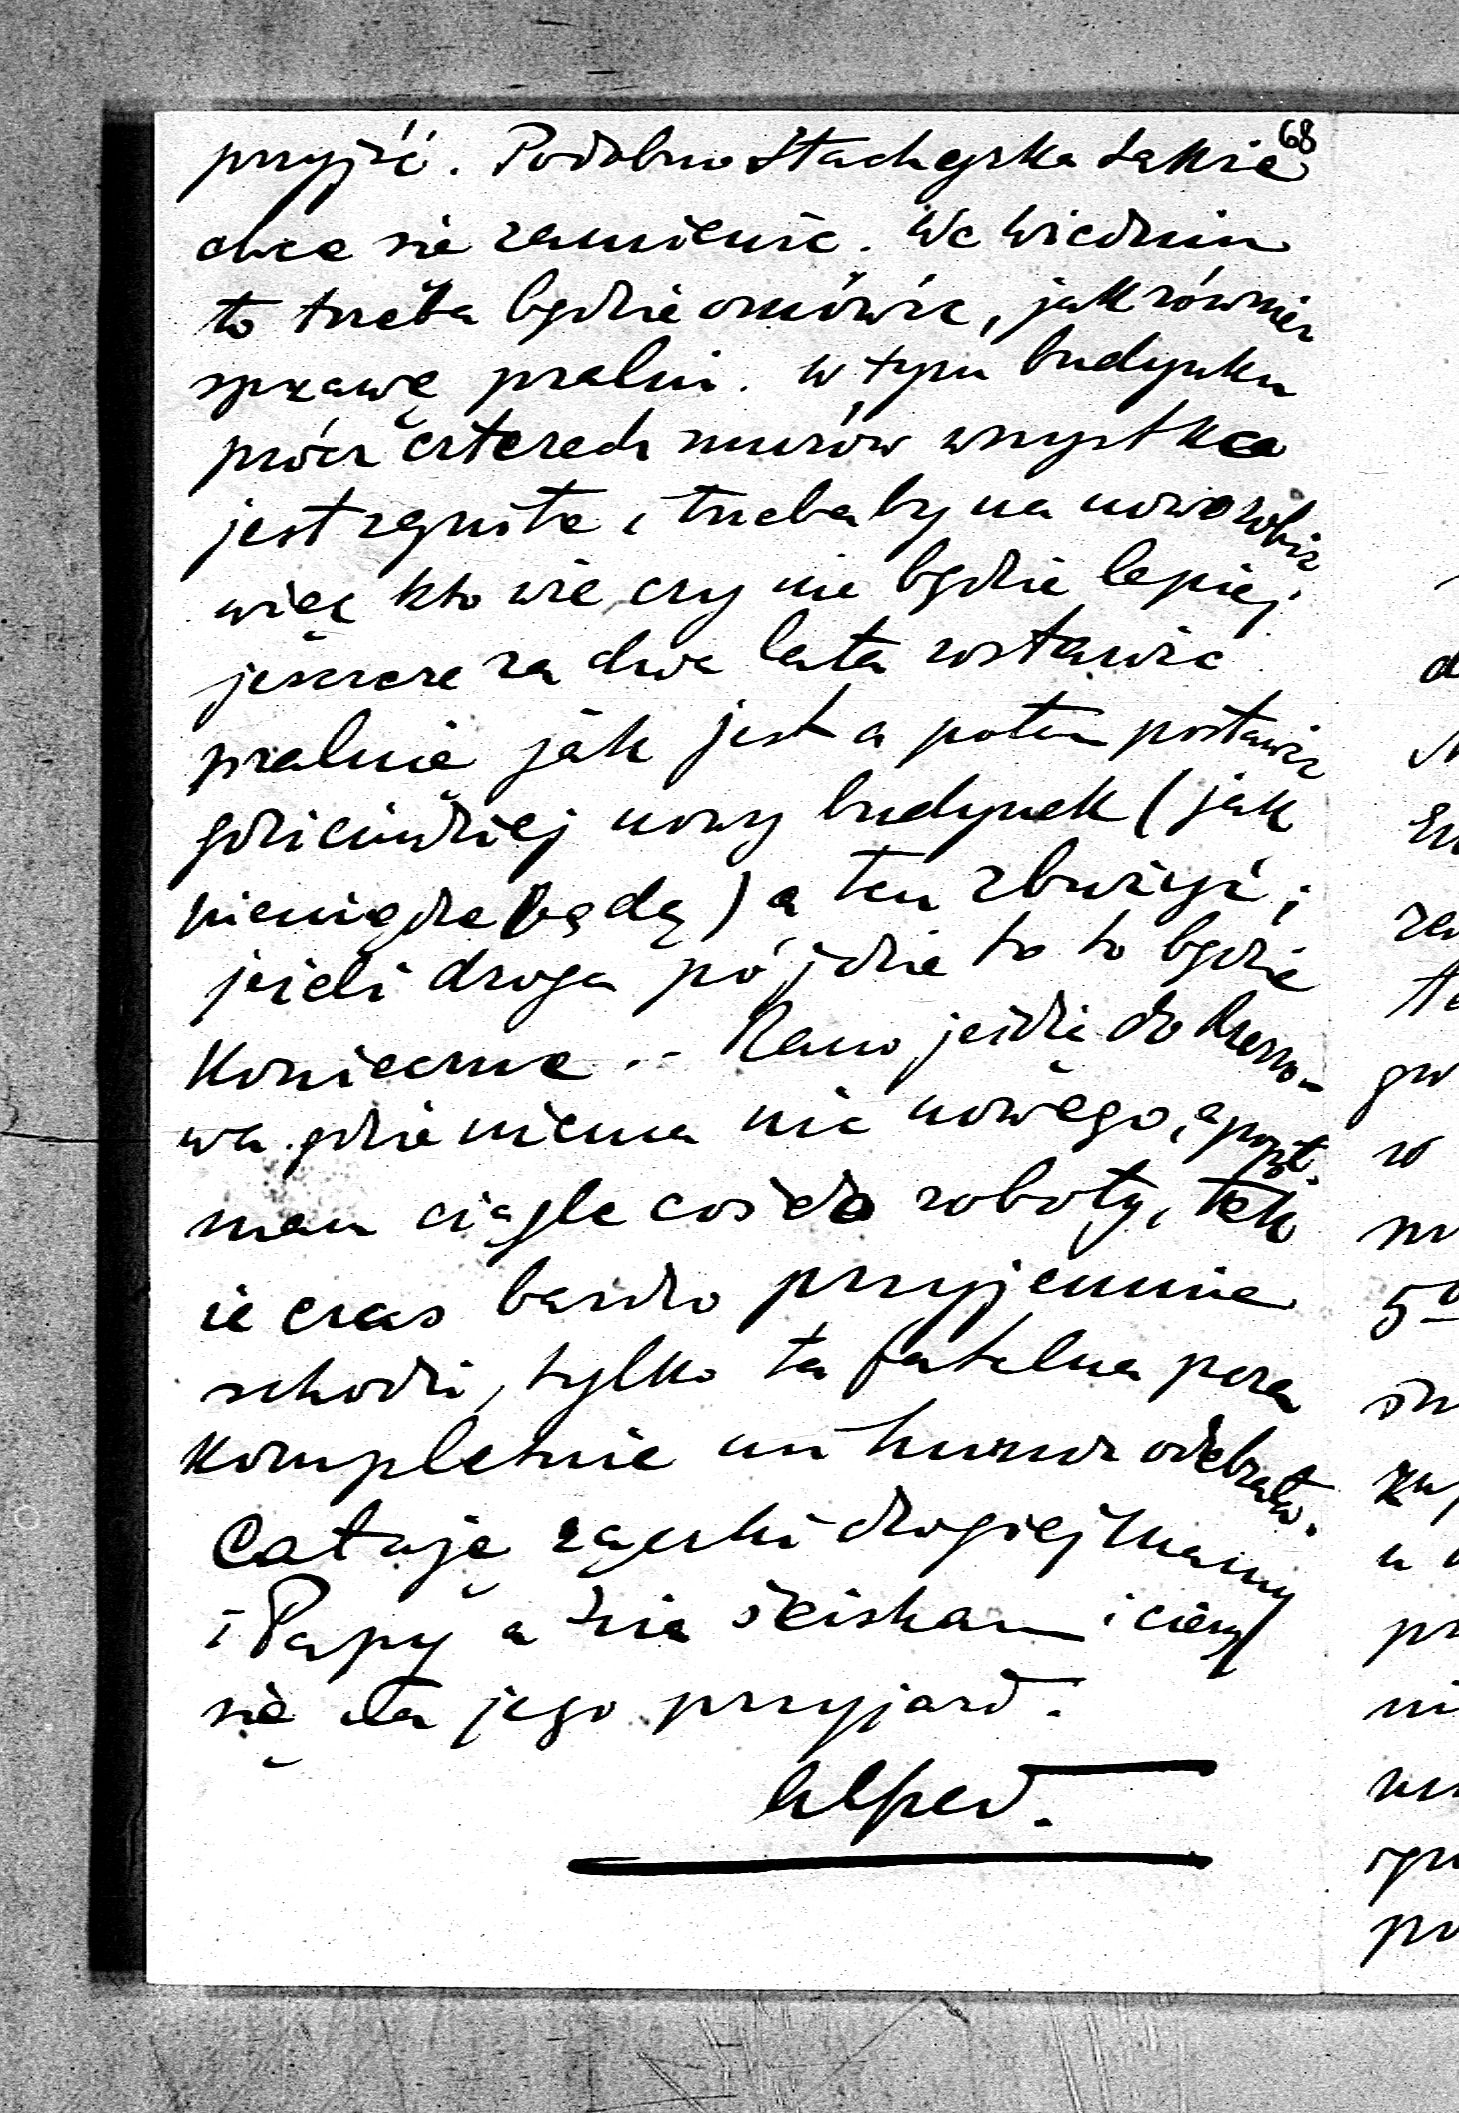 68
przyjść. Podobno Stachyrka także
chce się zamienić. We Wiedniu
to trzeba będzie omówić, jak również
sprawę pralni. W tym budynku
prócz czterech murów wszystko
jest zgniłe i trzebaby na nowo robić
więc kto wie, czy nie będzie lepiej
jeszcze za dwa lata zostawić
pralnię jak jest a potem postawić
gdzieindziej nowy budynek (jak
pieniądze będą) a ten zburzyć;
jeżeli droga pójdzie to to będzie
konieczne.- Rano jeżdżę do
wa gdzie niema nic nowego, a popoł.
mam ciągle coś do roboty, tak
że czas bardzo przyjemnie
schodzi, tylko ta fatalna pora
kompletnie mi humor odebrała.
Całuję rączki drogiej Mamy
i Papy a ściskam i cieszę
się na jego przyjazd.
Alfred.